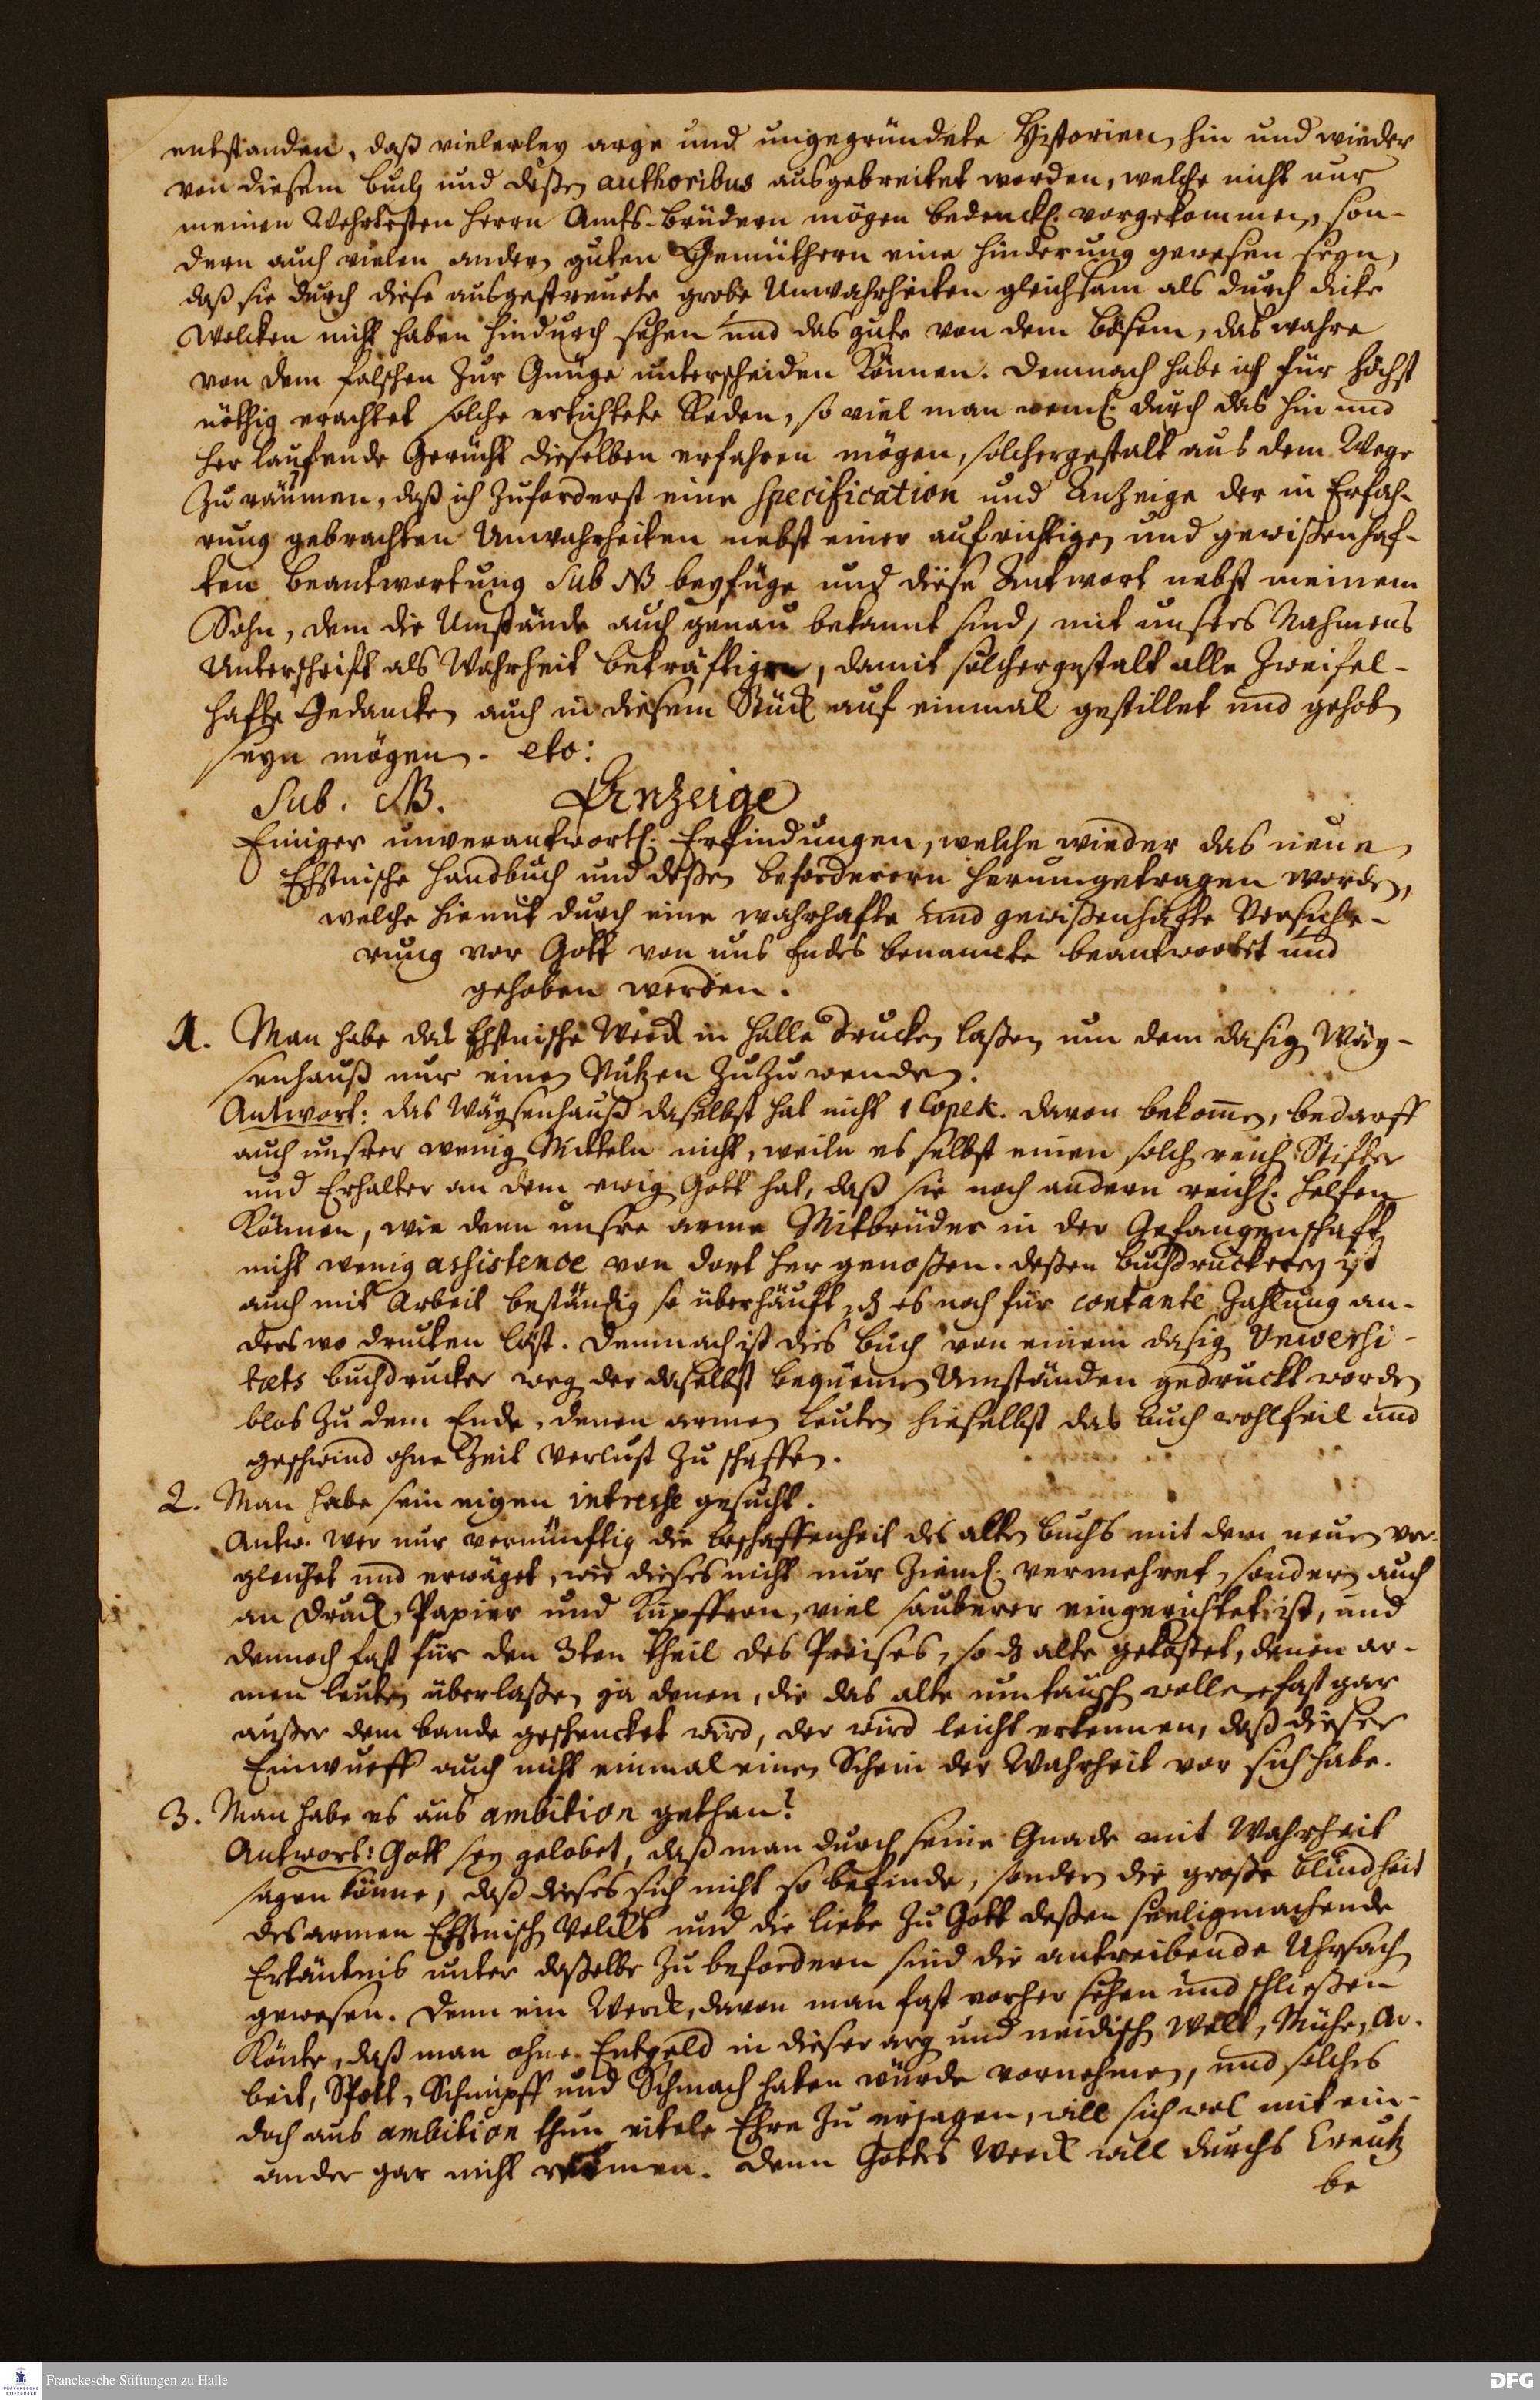 entstanden, daß vielerley arge und ungegründete Historien hin und wieder
von diesem buch und deßen authoribus ausgebreitet worden, welche nicht nur
meinen Wehrtesten Herrn Amts-brüdern mögen bedenckl. vorgekommen, son-
dern auch vielen andern guten Gemüthern eine hinderung gewesen seyn,
daß sie durch diese ausgestreuete grobe Unwahrheiten gleichsam als durch dicke
Wolcken nicht haben hindurch sehen und das gute von dem bösem, das wahre
von dem falschen zur Gnüge unterscheiden können. Demnach habe ich für höchst
nöthig erachtet solche ertichtete Reden, so viel man neml. durch das hin und
her lauffende Gerücht dieselben erfahren mögen, solchergestalt aus dem Wege
zu räumen, daß ich zuforderst eine Specification und Anzeige der in Erfah-
rung gebrachten Unwahrheiten nebst einer aufrichtigen und gewißenhaf-
ten beantwortung Sub NB beyfüge und diese Antwort nebst meinem
Sohn, dem die Umstände auch genau bekannt sind, mit unsers Nahmens
Unterschrift als Wahrheit bekräftigen, damit solchergestalt alle Zweifel-
hafte Gedancken auch in diesem Stück auf einmal gestillet und gehoben
seyn mögen. etc:
Sub. NB. Anzeige
Einiger unverantwortl. Erfindungen, welche wieder das neue
Ehstnische Handbuch und deßen beforderern herumgetragen worden,
welche hiemit durch eine wahrhafte und gewißenhafte Versiche-
rung vor Gott von uns Endes benannte beantwortet und
gehoben werden.
1. Man habe das Ehstnische Werck in Halle drucken laßen um dem dasigen Wäy-
senhauß nur einen Nutzen zuzuwenden.
Antwort: das Wäysenhauß daselbst hat nicht 1 Copek. davon bekomen, bedarff
auch unsrer wenigen Mitteln nicht, weiln es selbst einen solch reichen Stifter
und Erhalter an dem ewigen Gott hat, daß sie noch andern reichl. helfen
können, wie denn unsre arme Mitbrüder in der Gefangenschaft
nicht wenig assistence von dort her genoßen. deßen buchdruckerey ist
auch mit Arbeit beständig so überhäuft, dz es noch für contante Zahlung an-
derswo drucken läst. Demnach ist dis buch von einem dasigen Universi-
taets buchdrucker wegen der daselbst bequemen Umständen gedruckt worden
blos zu dem Ende, denen armen Leuten hieselbst das buch wohlfeil und
geschwind ohne Zeit Verlust zu schaffen.
2. Man habe sein eigen intresse gesucht.
Antw. Wer nur vernünftig die beschaffenheit des alten buchs mit dem neuen ver-
gleichet und erwäget, wie dieses nicht nur zieml. vermehret, sondern auch
an Druck, Papier und Kupffern, viel sauberer eingerichtet ist, und
dennoch fast für den 3ten theil des Preises, so dz alte gekostet, denen ar-
men leuten überlaßen ja denen, die das alte umtauschen wollen fast gar
außer dem bande geschencket wird, der wird leicht erkennen, daß dieser
Einwurff auch nicht einmal einen Schein der Wahrheit vor sich habe.
3. Man habe es aus ambition gethan?
Antwort: Gott sey gelobet, daß man durch seine Gnade mit Wahrheit
sagen könne, daß dieses sich nicht so befinde, sondern die große blindheit
des armen Ehstnischen Volcks und die liebe zu Gott deßen seeligmachende
Erkäntnis unter daßelbe zu befordern sind die antreibende Uhrsachen
gewesen. Denn ein Werck, davon man fast vorher sehen und schließen
könte, daß man ohne Entgeld in dieser argen und neidischen Welt, Mühe, Ar-
beit, Spott, Schimpff und Schmach haben würde vornehmen, und solches
doch aus ambition thun eitele Ehre zu erjagen, will sich wol mit ein-
ander gar nicht reimen. Denn Gottes Werck will durchs Creutz
be
Franckesche Stiftungen zu Halle
DFG